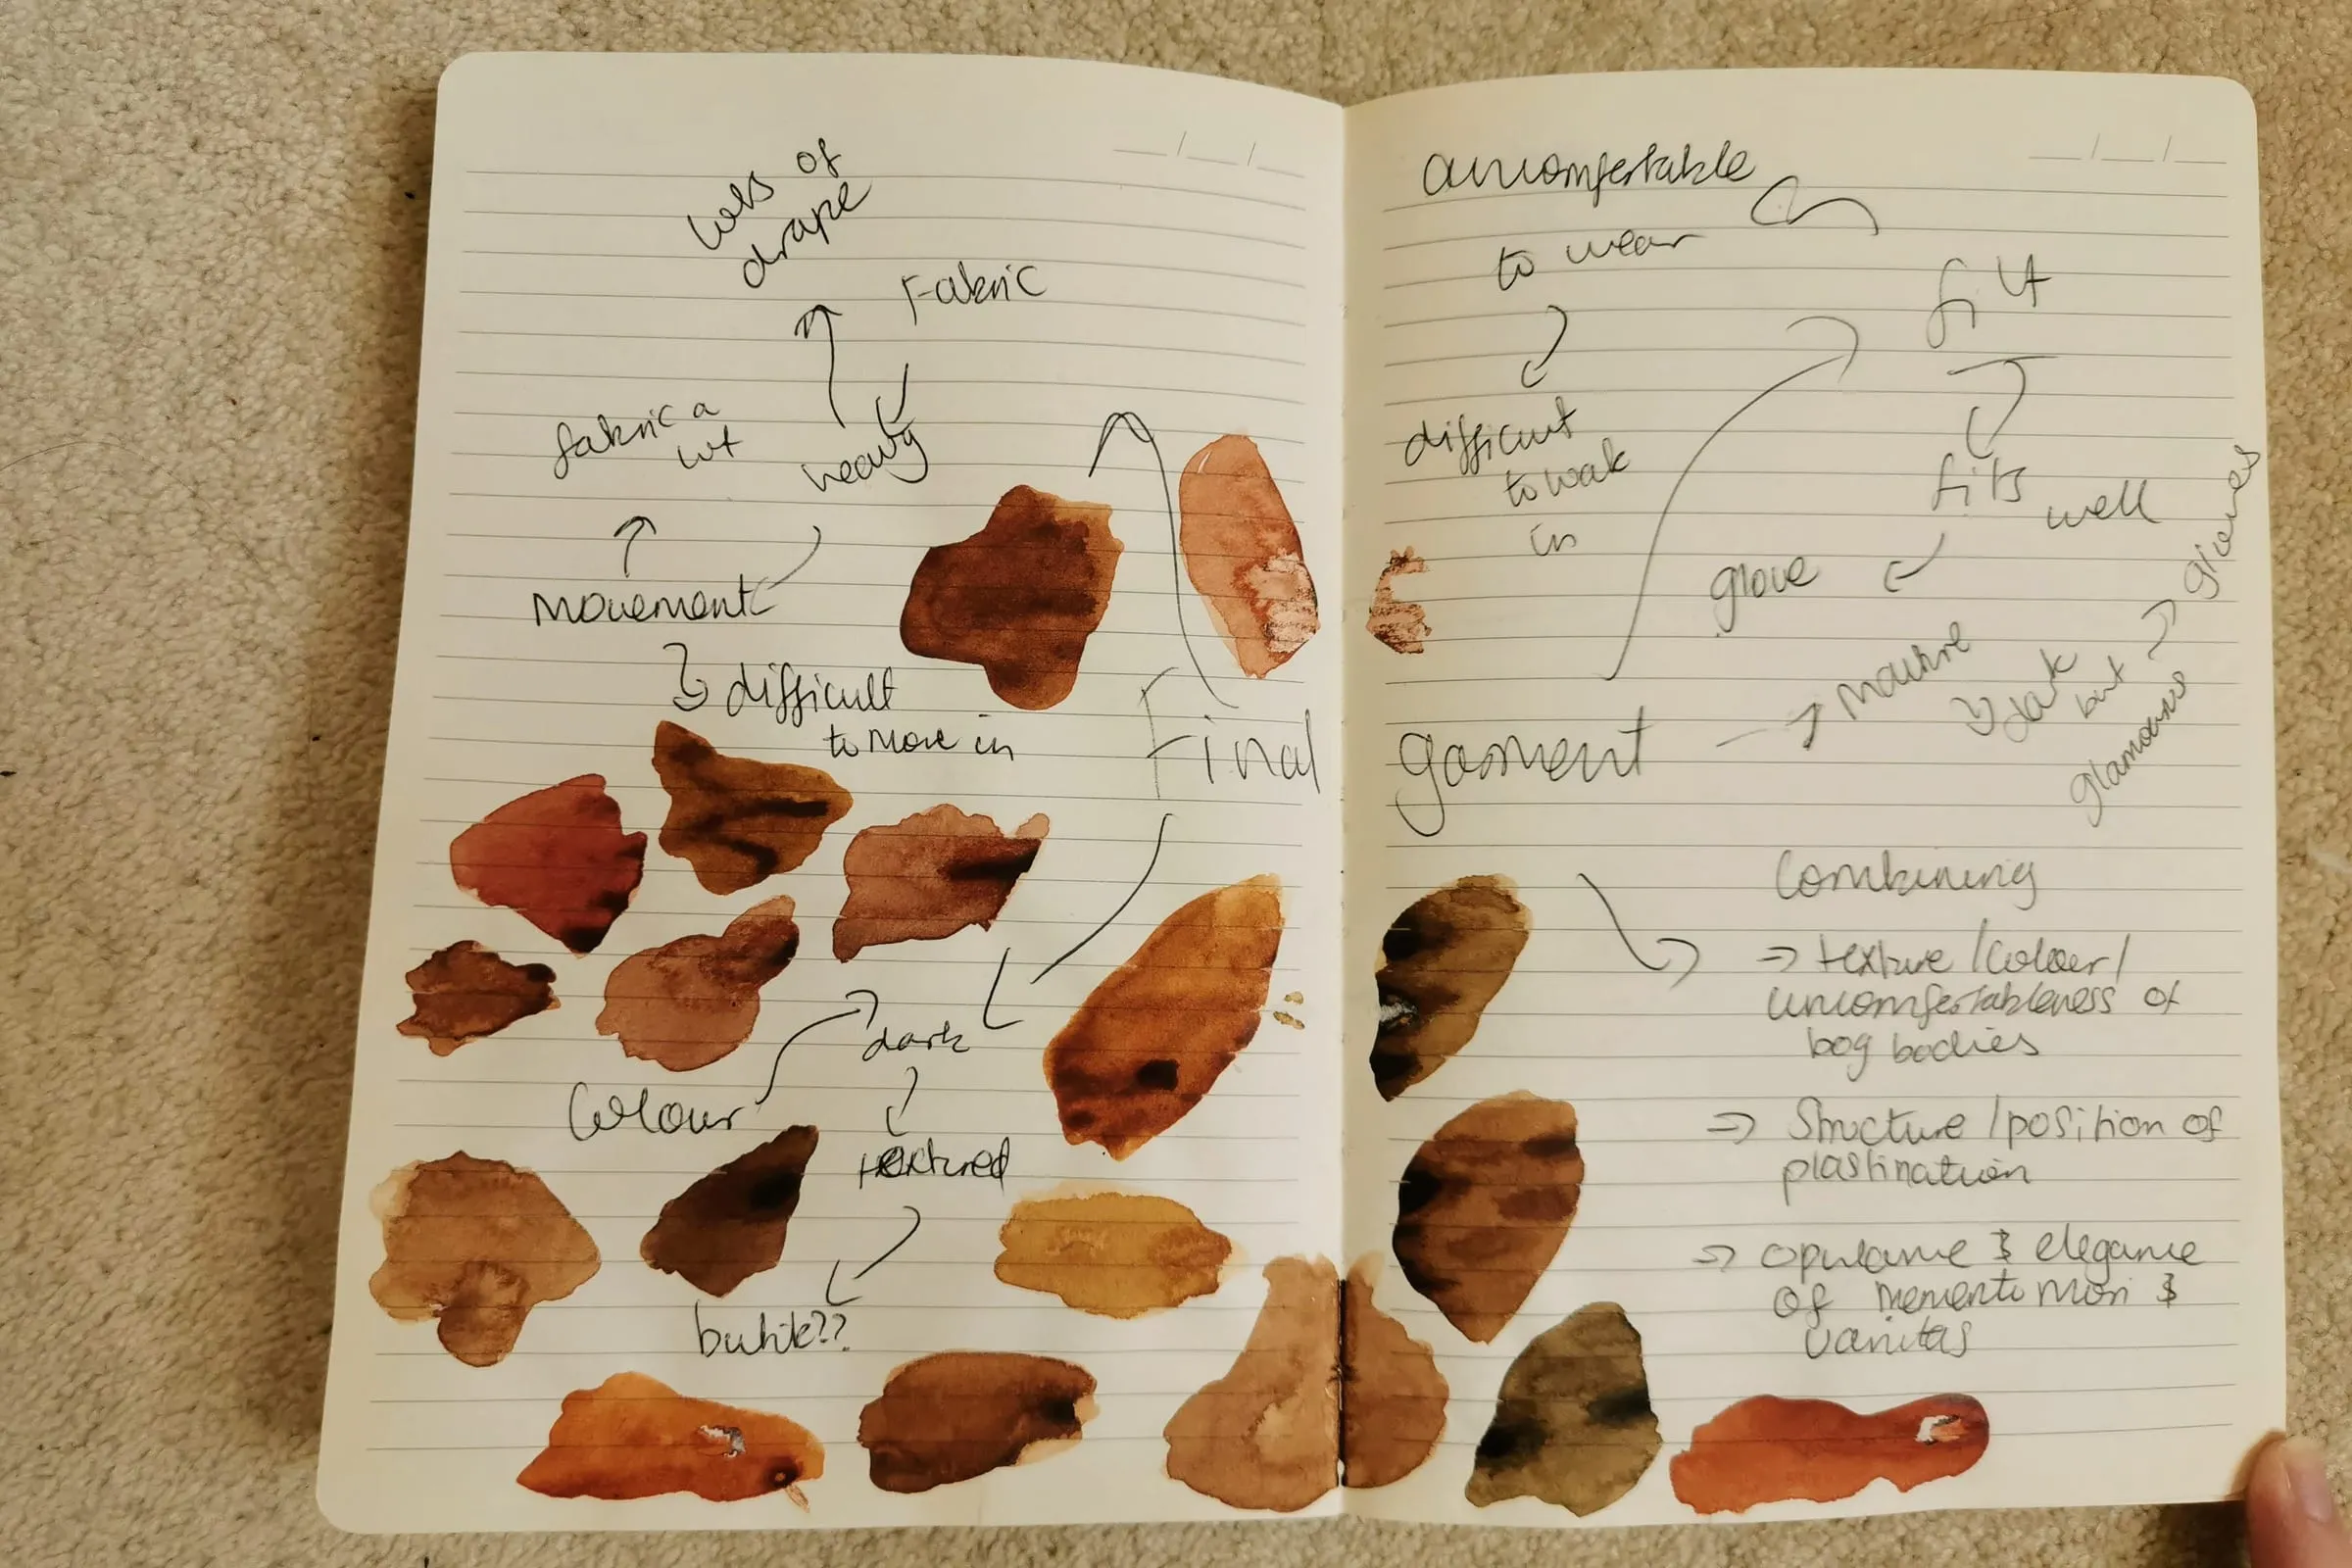 lots of
drape
Fabric
fabric a
lot
heavy
movement
difficult
to move in
Final
dark
Colour
textured
buhtk??
uncomfertable
to wear
fit
difficult
to walk
in
fits
well
glove
gloves
mature
dark
but
glamourus
garment
Combining
⇒ texture / Colour /
uncomfertableness of
bog bodies
⇒ Structure / position of
plastination
⇒ opulance & elegance
of memento mori &
vanitas